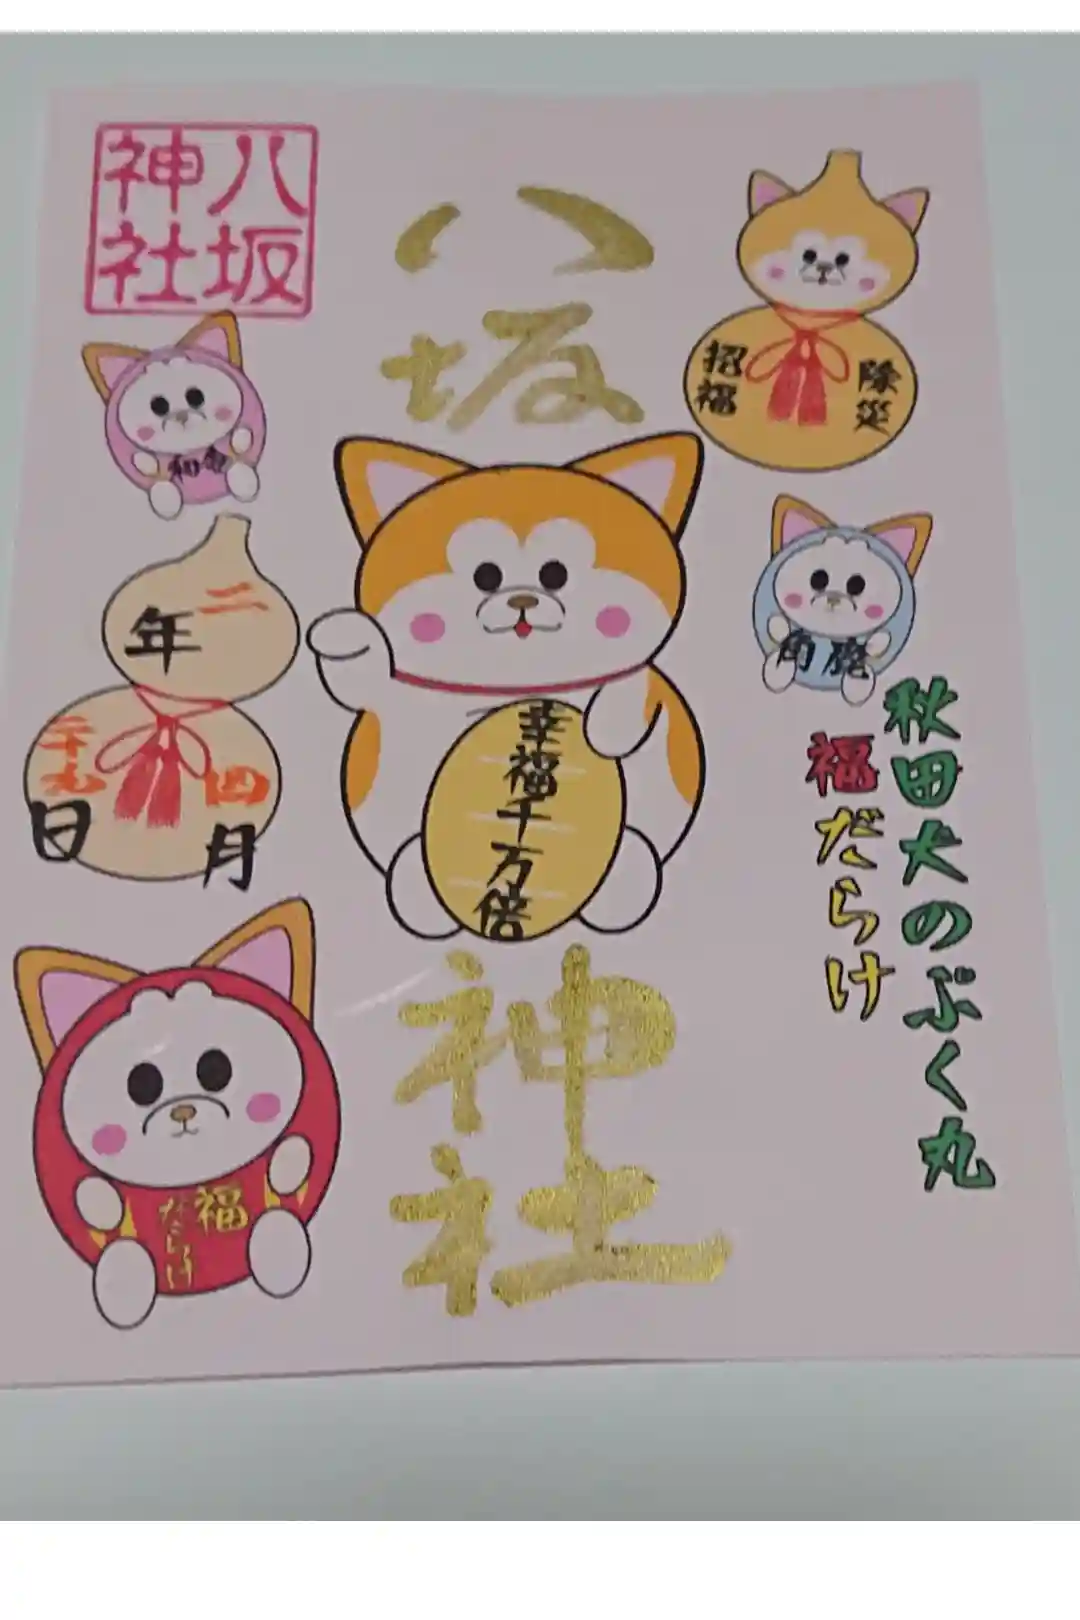 八坂
神社
八坂
神社
除災
招福
秋田犬のぶく丸
福だらけ
幸福千万倍
二
年
四
月
二十九
日
福
だらけ